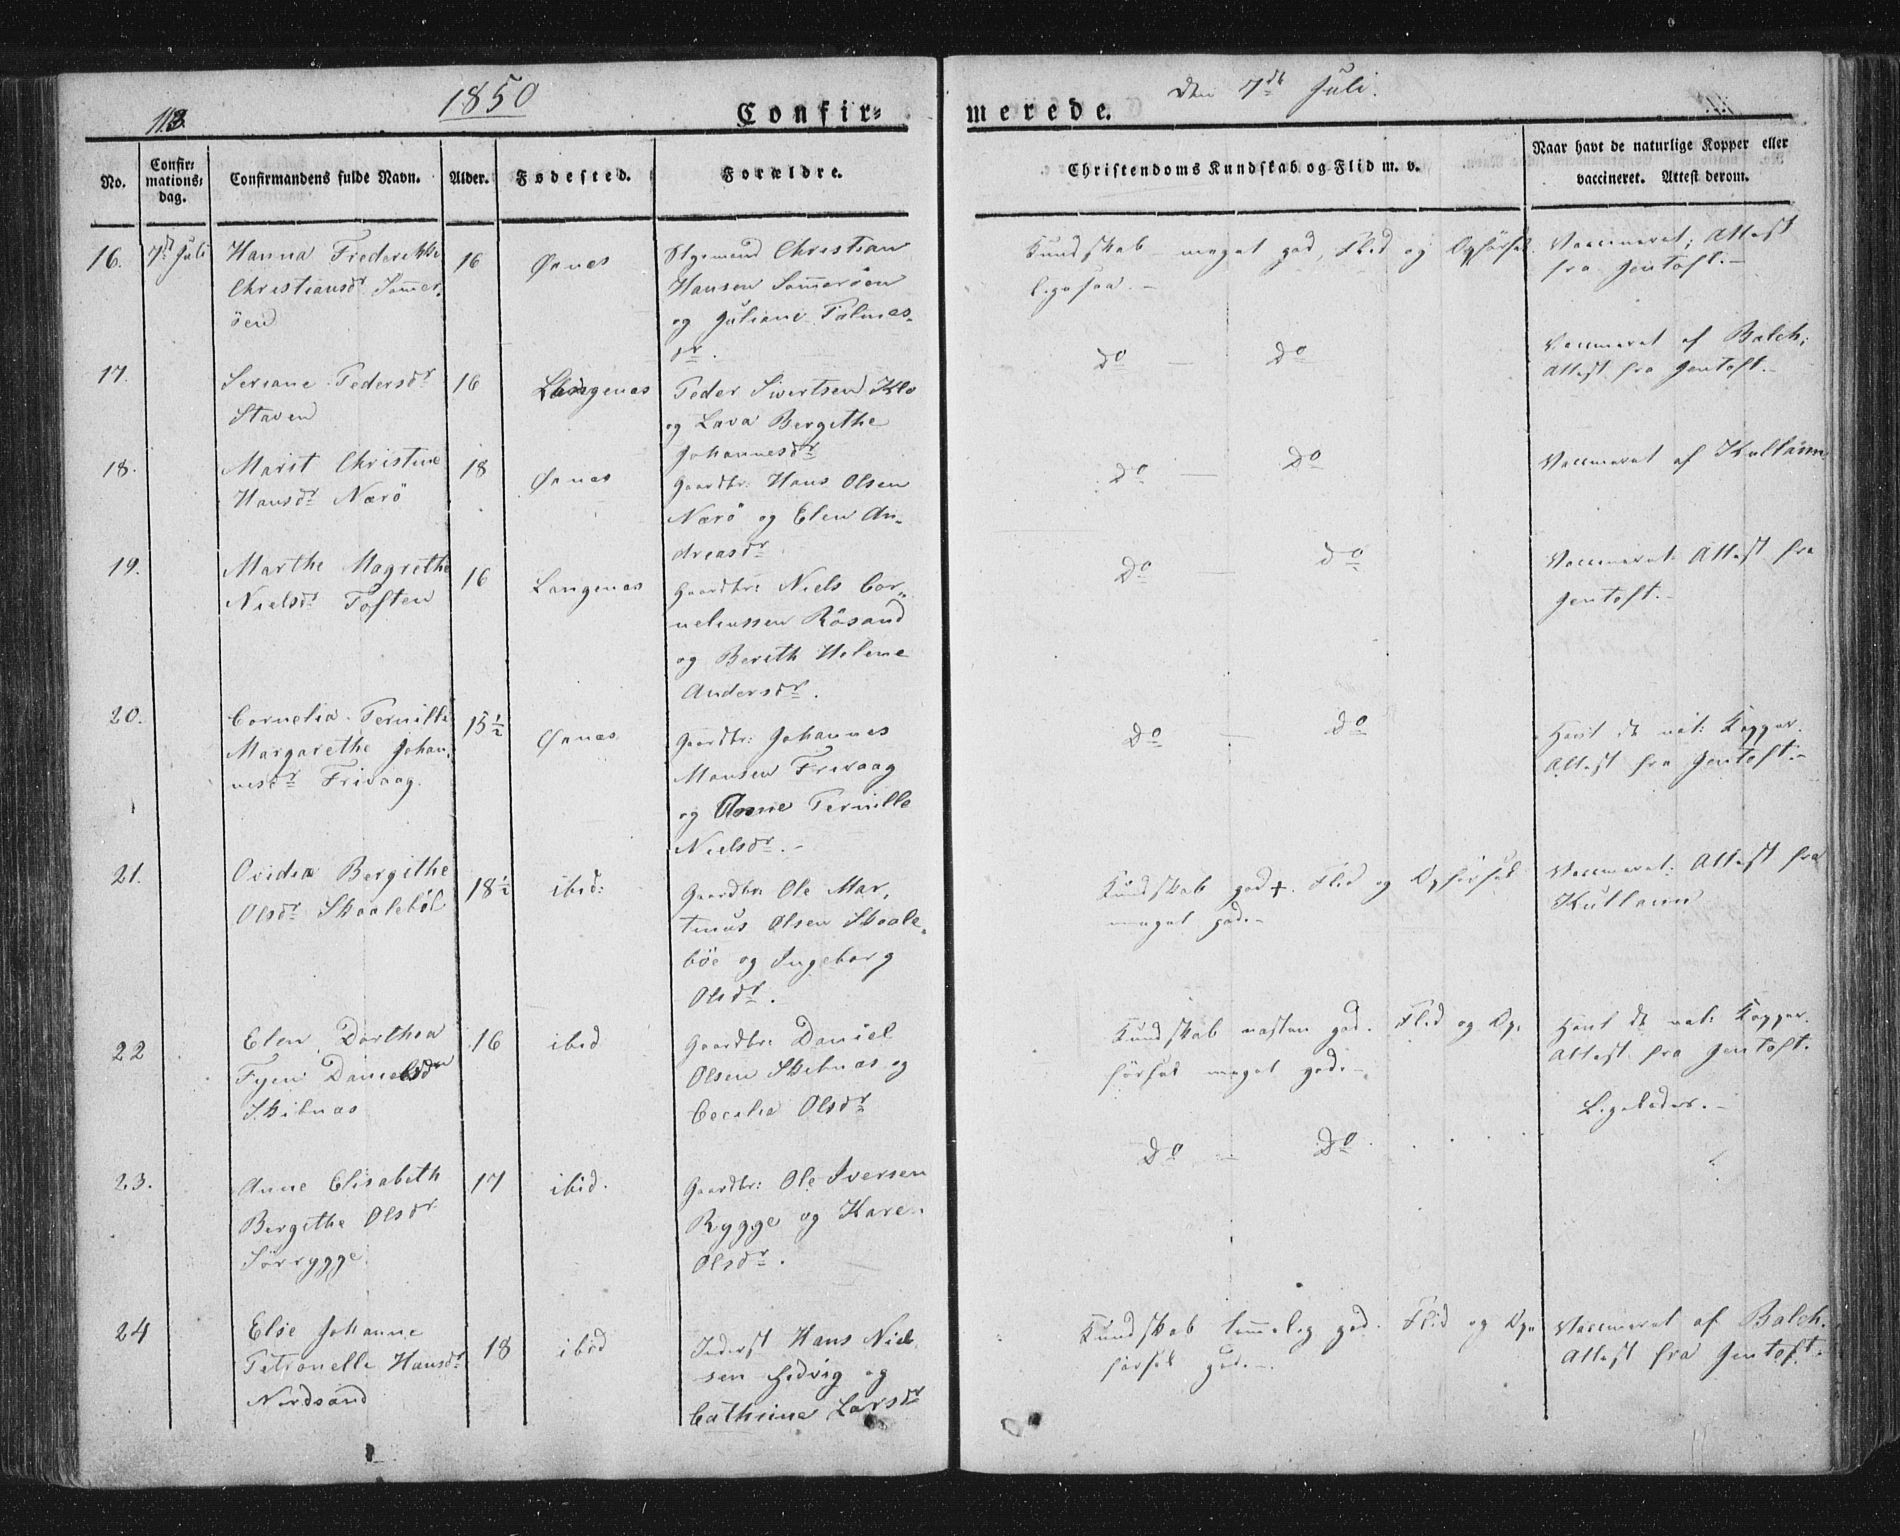 113.
1850
Confir-
merede.
Den 7de Juli.
No.
Confir-
mations-
dag.
Confirmandens fulde Navn.
Alder.
Fødested.
Forældre.
Christendoms Kundskab og Flid m. v.
Naar havt de naturlige Kopper eller
vaccineret. Attest derom.
16.
7de Juli
Hanna Frederikke
Christiansdr Sømer-
øen
16
Øxnes
Christian
Hansen Sømerøen
og Juliane Falmes-
dr.
Kundskab meget god, Flid og Opførsel
ligesaa.
Vaccineret; Attest
fra Jentoft.
17.
Seriane Pedersdr
Staven
16
Langenæs
Peder Sivertsen Klo
og Lava Bergithe
Johannesdr
Do — Do
Vaccineret af Balch;
Attest fra Jentoft.
18.
Marit Christine
Hansdr Nærö
18
Øxnæs
Gaardbr: Hans Olsen
Nærö og Elen An-
dreasdr
Do — Do
Vaccineret af
19.
Marthe Magrethe
Nielsdr Toften
16
Langenæs
Gaardbr: Niels Cor-
neliussen Rösand
og Bereth Helene
Andersdr.
Do — Do
Vaccineret. Attest fra
Jentoft.
20.
Cornelia Pernille
Margarethe Johan-
nesdr Frivaag.
15 1/2
Øxnæs
Gaardbr: Johannes
Monsen Frivaag
og Anne Pernille
Nielsdr.
Do — Do
Havt de nat: Kopper.
Attest fra Jentoft.
21.
Ovidia Bergithe
Olsdr Skaaleböl
18 1/2
ibid:
Gaardbr: Ole Mar-
tinus Olsen Skaale-
böe og Ingeborg
Olsdr.
Kundskab god +. Flid og Opførsel
meget god.
Vaccineret: Attest fra
22
Elen Dorthea
Fyen Danielsdr
Skibnæs
16
ibid
Gaardbr: Daniel
Olsen Skibnæs og
Cecelia Olsdr
Kundskab næsten god. Flid og Op-
førsel meget god.
Havt de nat: Kopper.
Attest fra Jentoft.
23.
Anne Elisabeth
Bergithe Olsdr
Sörrygge.
17
ibid.
Gaardbr: Ole Iversen
Rygge og Karen
Olsdr.
Do — Do.
Ligeledes.
24
Else Johanne
Petronelle Hansdr
Nordsand
18
ibid
Inderst Hans Niel-
sen Hedvig og
Cathrine Larsdr
Kundskab temmelig god. Flid og Op-
førsel god.
Vaccineret af Balch.
Attest fra Jentoft.